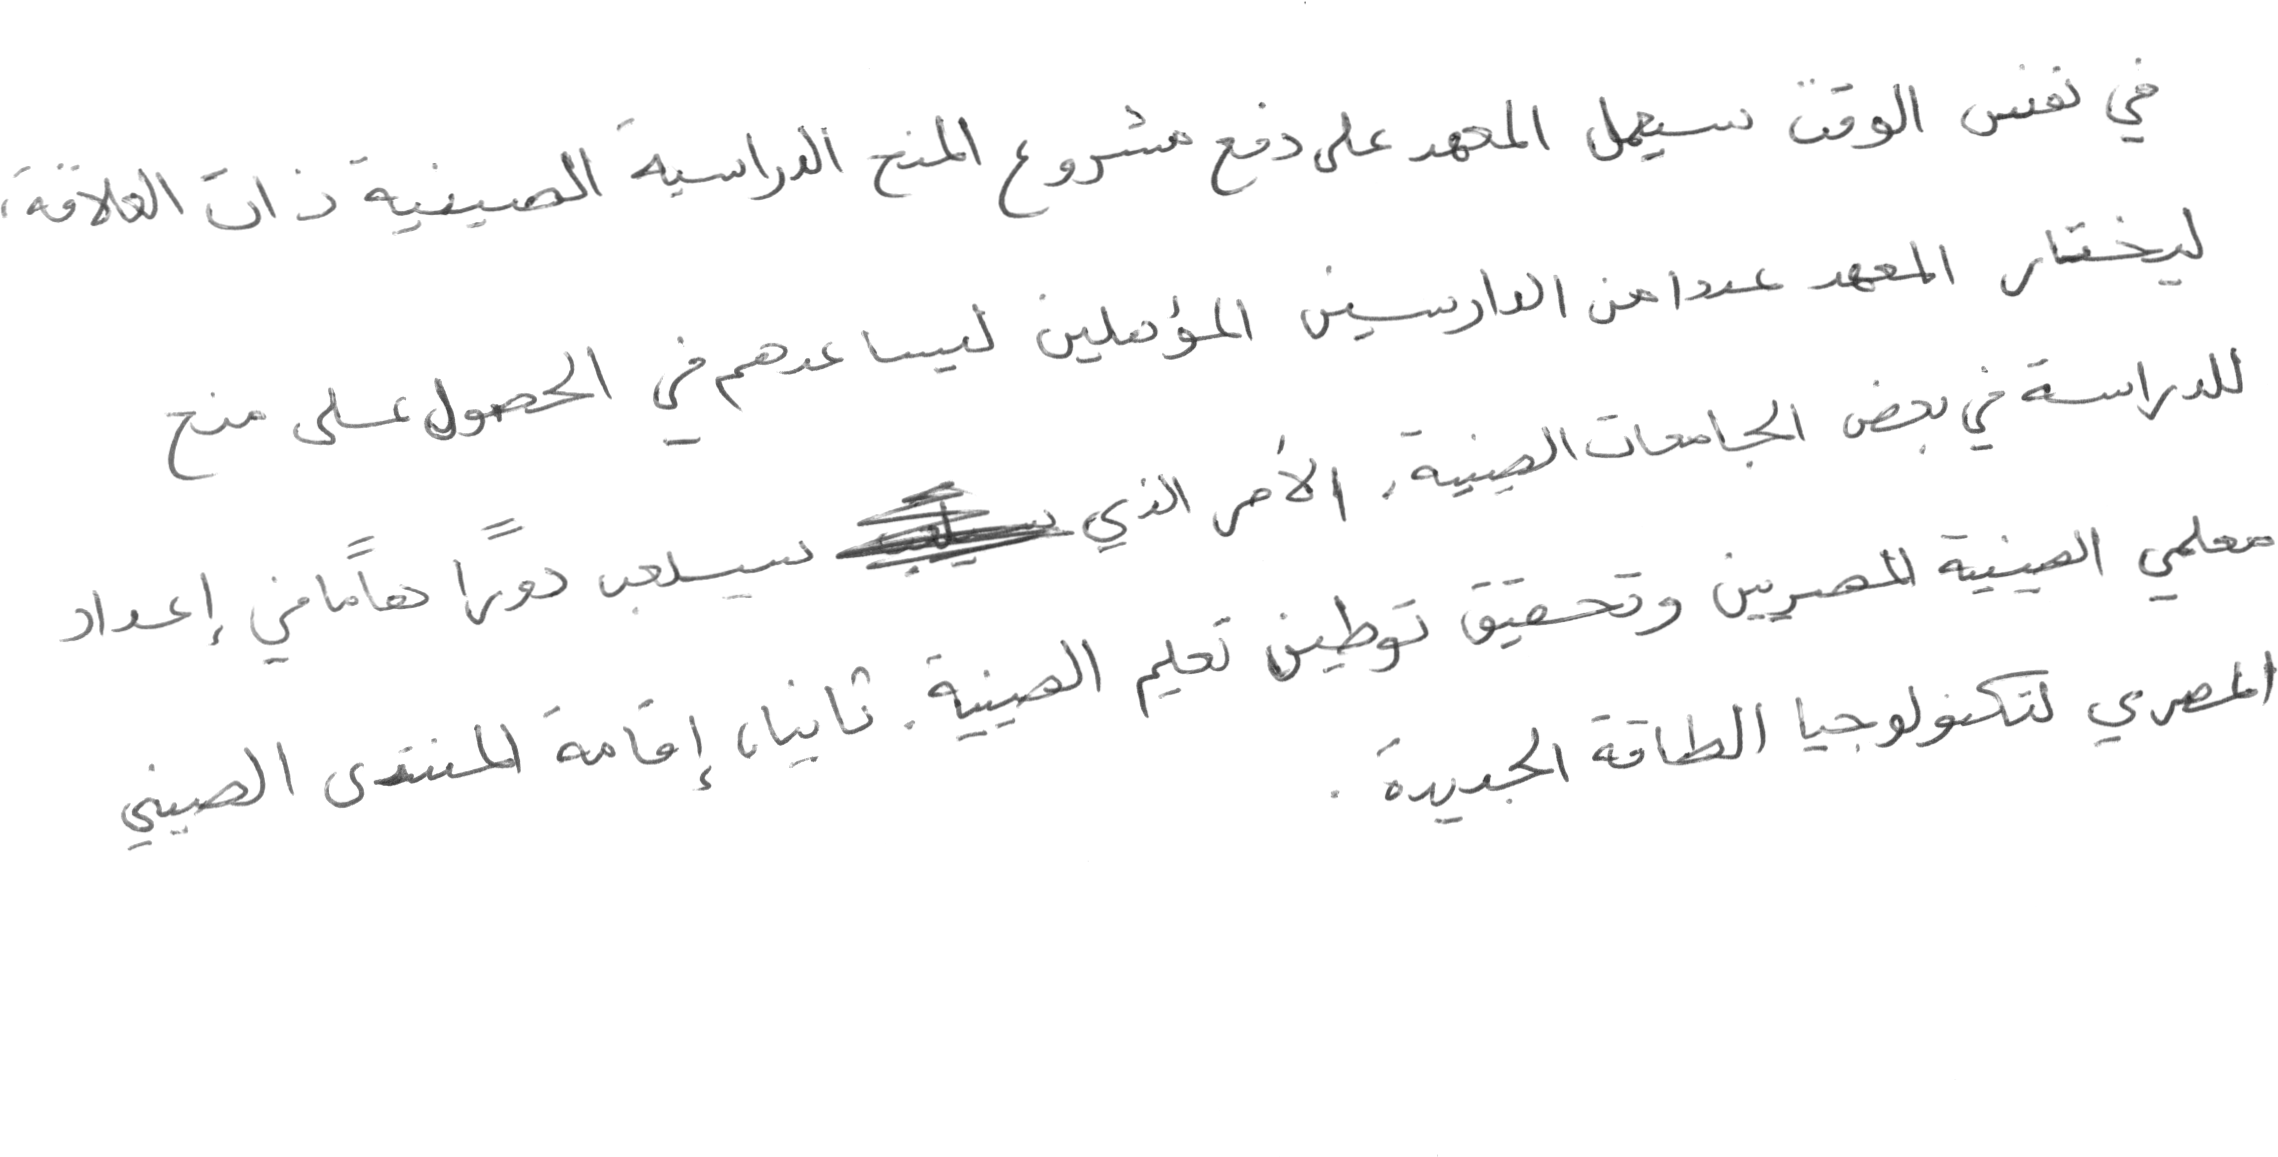 في نفس الوقت سيعمل المعهد على دفع مشروع المنح الدراسية الصينية ذات العلاقة،
ليختار المعهد عددا من الدارسين المؤهلين ليساعدهم في الحصول على منح
للدراسة في بعض الجامعات الصينية. الأمر الذي سيلعب دورًا هامًا في إعداد
معلمي الصينية المصريين وتحقيق توطين تعليم الصينية. ثانيا، إقامة المنتدى الصيني
المصري لتكنولوجيا الطاقة الجديدة.